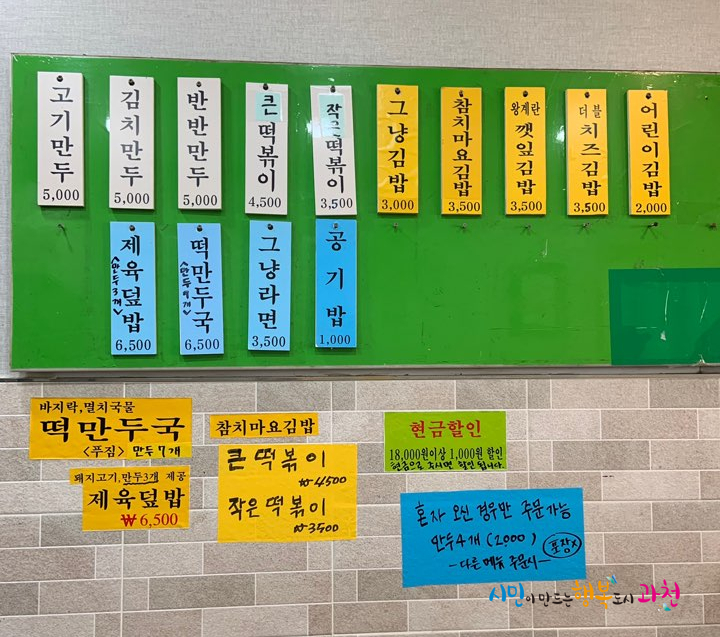 고기만두
5,000
김치만두
5,000
반반만두
5,000
큰떡볶이
4,500
작은떡볶이
3,500
그냥김밥
3,000
참치마요김밥
3,500
왕계란
깻잎김밥
3,500
더블
치즈김밥
3,500
어린이김밥
2,000
제육덮밥
<만두3개>
6,500
떡만두국
<만두7개>
6,500
그냥라면
3,500
공기밥
1,000
바지락,멸치국물
떡만두국
<푸짐> 만두7개
돼지고기,만두3개 제공
제육덮밥
₩6,500
참치마요김밥
큰떡볶이
₩4500
작은떡볶이
₩3500
현금할인
18,000원이상 1,000원 할인
현금으로 주시면 할인 됩니다.
혼자 오신 경우만 주문가능
만두4개 (2,000)
포장X
-다른메뉴 주문시-
시민이 만드는 행복도시 과천